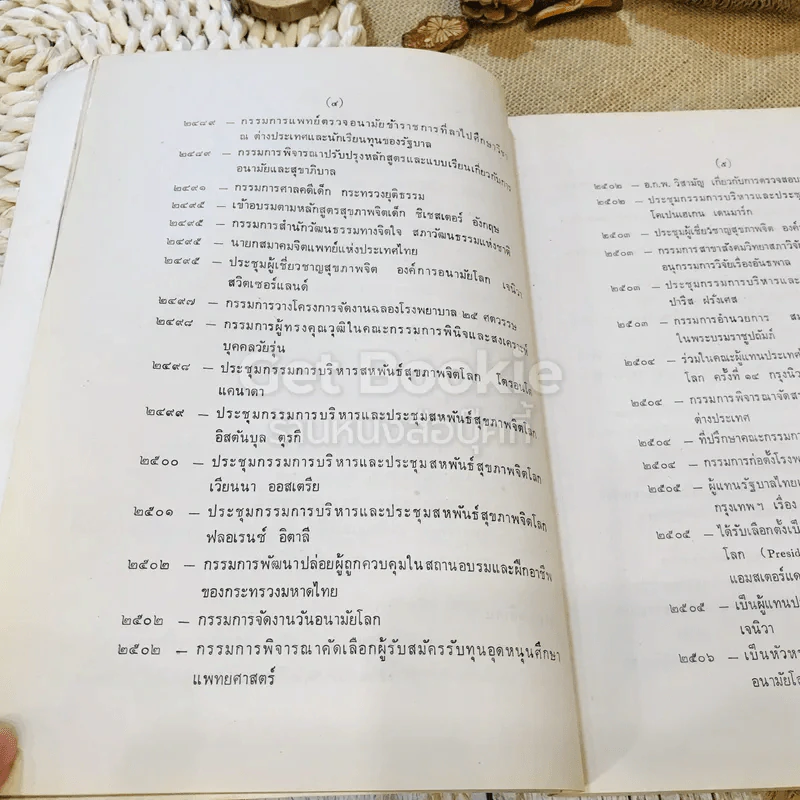 (๔)
๒๔๘๙ – กรรมการแพทย์ตรวจอนามัยข้าราชการที่ลาไปศึกษาวิชา
ณ ต่างประเทศและนักเรียนทุนของรัฐบาล
๒๔๘๙ – กรรมการพิจารณาปรับปรุงหลักสูตรและแบบเรียนเกี่ยวกับการ
อนามัยและสุขาภิบาล
๒๔๙๑ – กรรมการศาลคดีเด็ก กระทรวงยุติธรรม
๒๔๙๕ – เข้าอบรมตามหลักสูตรสุขภาพจิตเด็ก ชิเชสเตอร์ อังกฤษ
๒๔๙๕ – กรรมการสำนักวัฒนธรรมทางจิตใจ สภาวัฒนธรรมแห่งชาติ
๒๔๙๕ – นายกสมาคมจิตแพทย์แห่งประเทศไทย
๒๔๙๕ – ประชุมผู้เชี่ยวชาญสุขภาพจิต องค์การอนามัยโลก เจนิวา
สวิตเซอร์แลนด์
๒๔๙๗ – กรรมการวางโครงการจัดงานฉลองโรงพยาบาล ๒๕ ศตวรรษ
๒๔๙๘ – กรรมการผู้ทรงคุณวุฒิในคณะกรรมการพินิจและสงเคราะห์
บุคคลวัยรุ่น
๒๔๙๘ – ประชุมกรรมการบริหารสหพันธ์สุขภาพจิตโลก โตรอนโต
แคนาดา
๒๔๙๙ – ประชุมกรรมการบริหารและประชุมสหพันธ์สุขภาพจิตโลก
อิสตันบุล ตุรกี
๒๕๐๐ – ประชุมกรรมการบริหารและประชุมสหพันธ์สุขภาพจิตโลก
เวียนนา ออสเตรีย
๒๕๐๑ – ประชุมกรรมการบริหารและประชุมสหพันธ์สุขภาพจิตโลก
ฟลอเรนซ์ อิตาลี
๒๕๐๒ – กรรมการพัฒนาปล่อยผู้ถูกควบคุมในสถานอบรมและฝึกอาชีพ
ของกระทรวงมหาดไทย
๒๕๐๒ – กรรมการจัดงานวันอนามัยโลก
๒๕๐๒ – กรรมการพิจารณาคัดเลือกผู้รับสมัครรับทุนอุดหนุนศึกษา
แพทยศาสตร์
(๕)
๒๕๐๒ – อ.ก.พ. วิสามัญ เกี่ยวกับการตรวจสอบ
๒๕๐๒ – ประชุมกรรมการบริหารและประชุ
โคเปนเฮเกน เดนมาร์ก
๒๕๐๓ – ประชุมผู้เชี่ยวชาญสุขภาพจิต องค์
๒๕๐๓ – กรรมการสาขาสังคมวิทยาสภาวิจัย
อนุกรรมการวิจัยเรื่องอันธพาล
๒๕๐๓ – ประชุมกรรมการบริหารและ
ปารีส ฝรั่งเศส
๒๕๐๓ – กรรมการอำนวยการ สม
ในพระบรมราชูปถัมภ์
๒๕๐๔ – ร่วมในคณะผู้แทนประเทศไ
โลก ครั้งที่ ๑๔ กรุงนิว
๒๕๐๔ – กรรมการพิจารณาจัดส
ต่างประเทศ
๒๕๐๔ – ที่ปรึกษาคณะกรรมกา
๒๕๐๔ – กรรมการก่อตั้งโรงพ
๒๕๐๕ – ผู้แทนรัฐบาลไทยเ
กรุงเทพฯ เรื่อง
๒๕๐๕ – ได้รับเลือกตั้งเป็
โลก (Presid
แอมสเตอร์แด
๒๕๐๕ – เป็นผู้แทนป
เจนิวา
๒๕๐๖ – เป็นหัวห
อนามัยโล
Get Bookie
ร้านหนังสือบุ๊คกี้